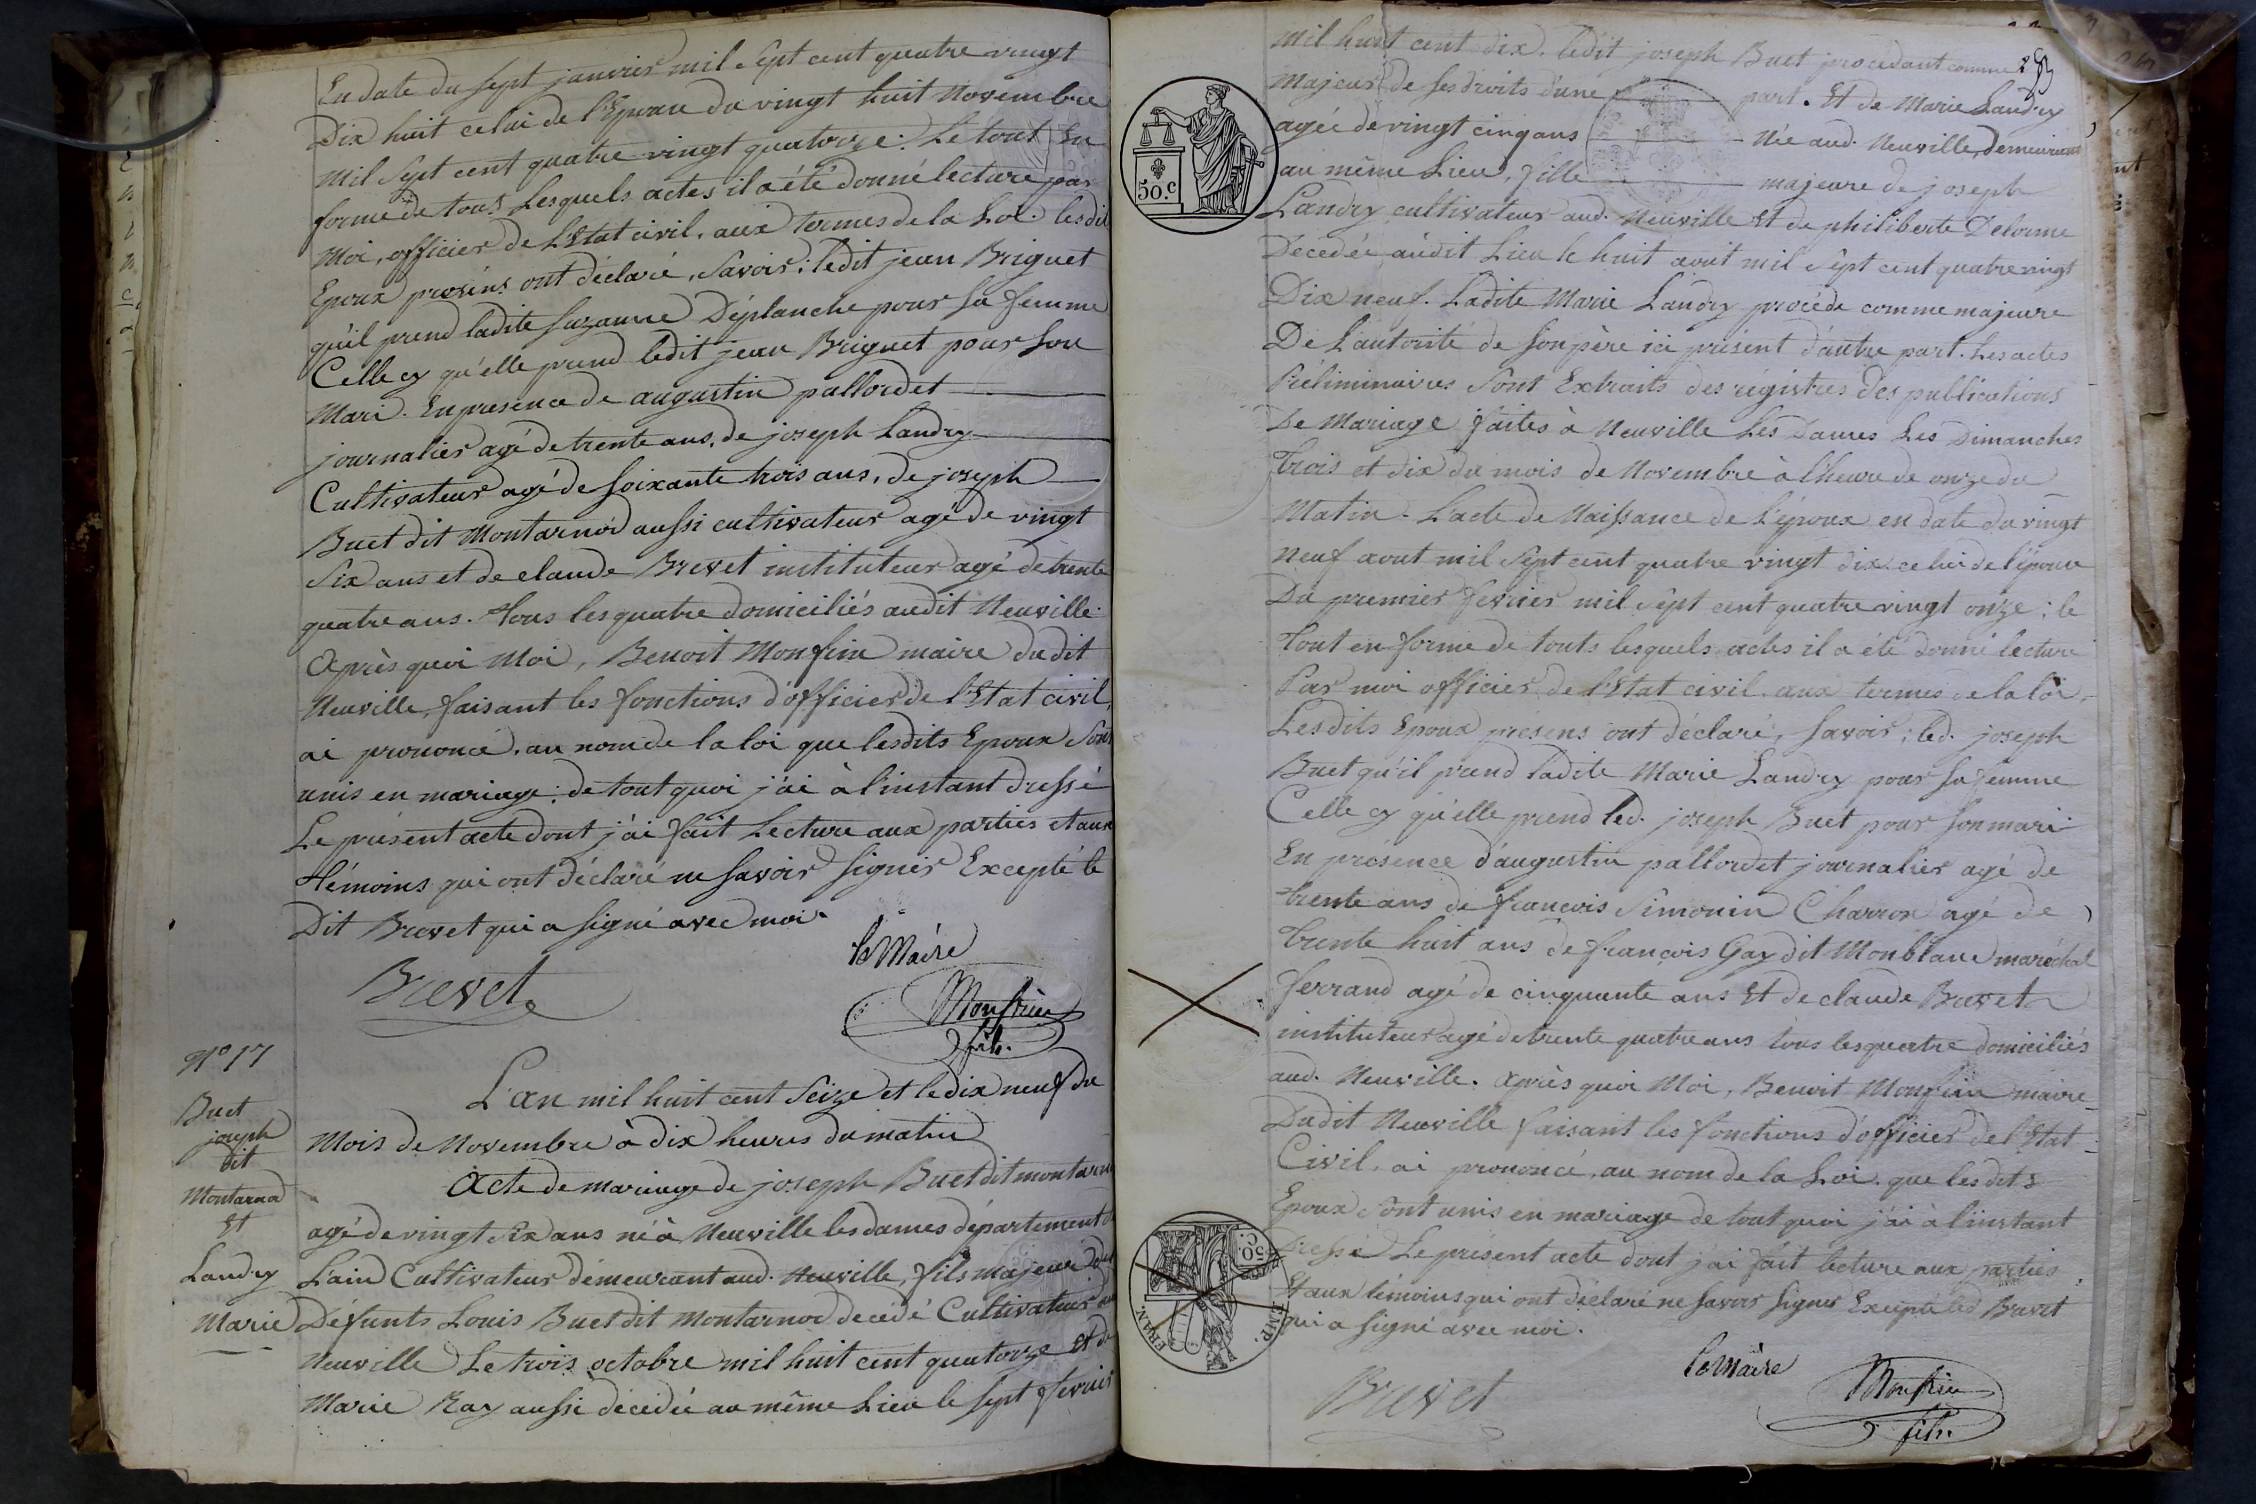 En date du sept janvier mil sept cent quatre vingt
Dix huit celui de l'Epouse du vingt huit Novembre
mil sept cent quatre vingt quatorze : Le tout en
forme de tous Lesquels actes il a été donné lecture par
Moi, officier de L'Etat civil, aux termes de la Loi. lesdits
Epoux présens ont déclaré, savoir : ledit jean Briguet
qu'il prend ladite suzanne Déplanche pour sa femme
Celle cy qu'elle prend ledit jean Briguet pour son
Mari. En presence de augustin pallordet
journalier agé de trente ans, de joseph Landry
Cultivateur agé de soixante trois ans, de joseph
Buet dit Montarnod aussi cultivateur agé de vingt
six ans et de claude Brevet instituteur agé de trente
quatre ans. tous les quatre domiciliés audit Neuville.
Après quoi Moi, Benoit Monfrin maire dudit
Neuville, faisant les fonctions d'officier de l'Etat civil,
ai prononcé, au nom de la loi que lesdits Epoux sont
unis en mariage : de tout quoi j'ai à l'instant dressé
Le présent acte dont j'ai fait Lecture aux parties et aux
témoins qui ont déclaré ne savoir signer Excepté le
Dit Brevet qui a signé avec moi.
le Maire
Brevet
Monfrin
fils.
N° 17
Buet
joseph
dit
Montarnod
Et
Landry
Marie
L'an mil huit cent Seize et le dix neuf du
Mois de Novembre à dix heures du matin
Acte de mariage de joseph Buet dit montarnod
agé de vingt six ans né à Neuville les dames département de
L'ain Cultivateur demeurant aud. Neuville, fils majeur de
Défunts Louis Buet dit Montarnod decédé Cultivateur aud
Neuville Le trois octobre mil huit cent quatorze Et de
Marie Ray aussi décedée au même Lieu le sept fevrier
mil huit cent dix. ledit joseph Buet procedant comme
majeur de ses droits d'une part. Et de Marie Landry
agée de vingt cinq ans Née aud. Neuville, demeurant
au même Lieu, fille majeure de joseph
Landry cultivateur aud. Neuville Et de philiberte Delorme
Decedée audit Lieu le huit aout mil sept cent quatre vingt
Dix neuf. Ladite Marie Landry procéde comme majeure
De L'autorité de son père ici présent d'autre part. Les actes
Préliminaires sont Extraits des régistres des publications
De Mariage faites à Neuville Les Dames Les Dimanches
trois et dix du mois de Novembre à l'heure de onze du
Matin. L'acte de Naissance de l'époux en date du vingt
neuf aout mil sept cent quatre vingt dix celui de l'épouse
Du premier fevrier mil sept cent quatre vingt onze : le
tout en forme de touts lesquels actes il a été donné lecture
Par moi officier de l'Etat civil aux termes de la loi.
Lesdits Epoux presens ont déclaré, savoir : led. joseph
Buet qu'il prend ladite Marie Landry pour sa femme
Celle cy qu'elle prend led. joseph Buet pour son mari
En présence d'augustin pallordet journalier agé de
trente ans de françois Simonin Charron agé de
trente huit ans de françois Gay dit Monblanc maréchal
ferrand agé de cinquante ans Et de claude Brevet
instituteur agé de trente quatre ans tous les quatre domiciliés
aud. Neuville. Après quoi Moi, Benoit Monfrin maire
Dudit Neuville faisant les fonctions d'officier de l'Etat
Civil, ai prononcé, au nom de la Loi que les dits
Epoux sont unis en mariage de tout quoi j'ai à l'instant
dressé Le présent acte dont j'ai fait lecture aux parties
Et aux témoins qui ont déclaré ne savoir signer Excepté led Brevet
qui a signé avec moi.
le Maire
Brevet
Monfrin
fils.
50.c
50. C.
EMP.
FRAN.